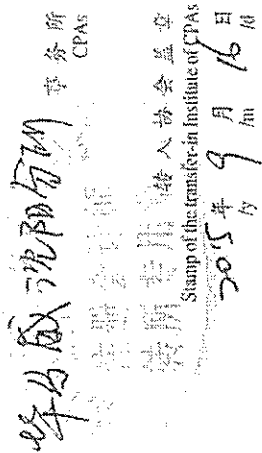 毕马威沈阳分所 事务所
CPAs
转入协会盖章
Stamp of the transfer-in Institute of CPAs
2015年 9月 16日
/y /m /d